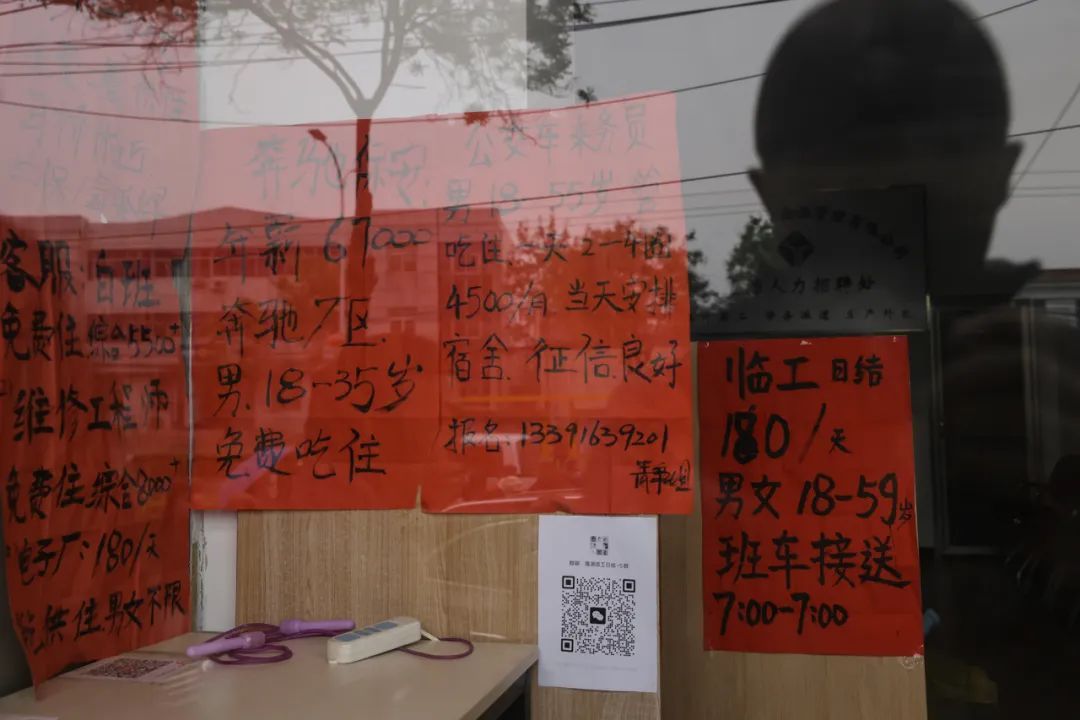 客服:白班
免费住综合5500+
维修工程师
免费住综合8000+
电子厂:180/天
供住.男女不限
奔驰保安:
年薪67000
奔驰7区.
男.18-35岁
免费吃住
公交车乘务员
男18-55岁
吃住.一天2-4圈
4500/月当天安排
宿舍.征信良好
报名.13391639201
人力招聘处
临工日结
180/天
男女18-59岁
班车接送
7:00-7:00